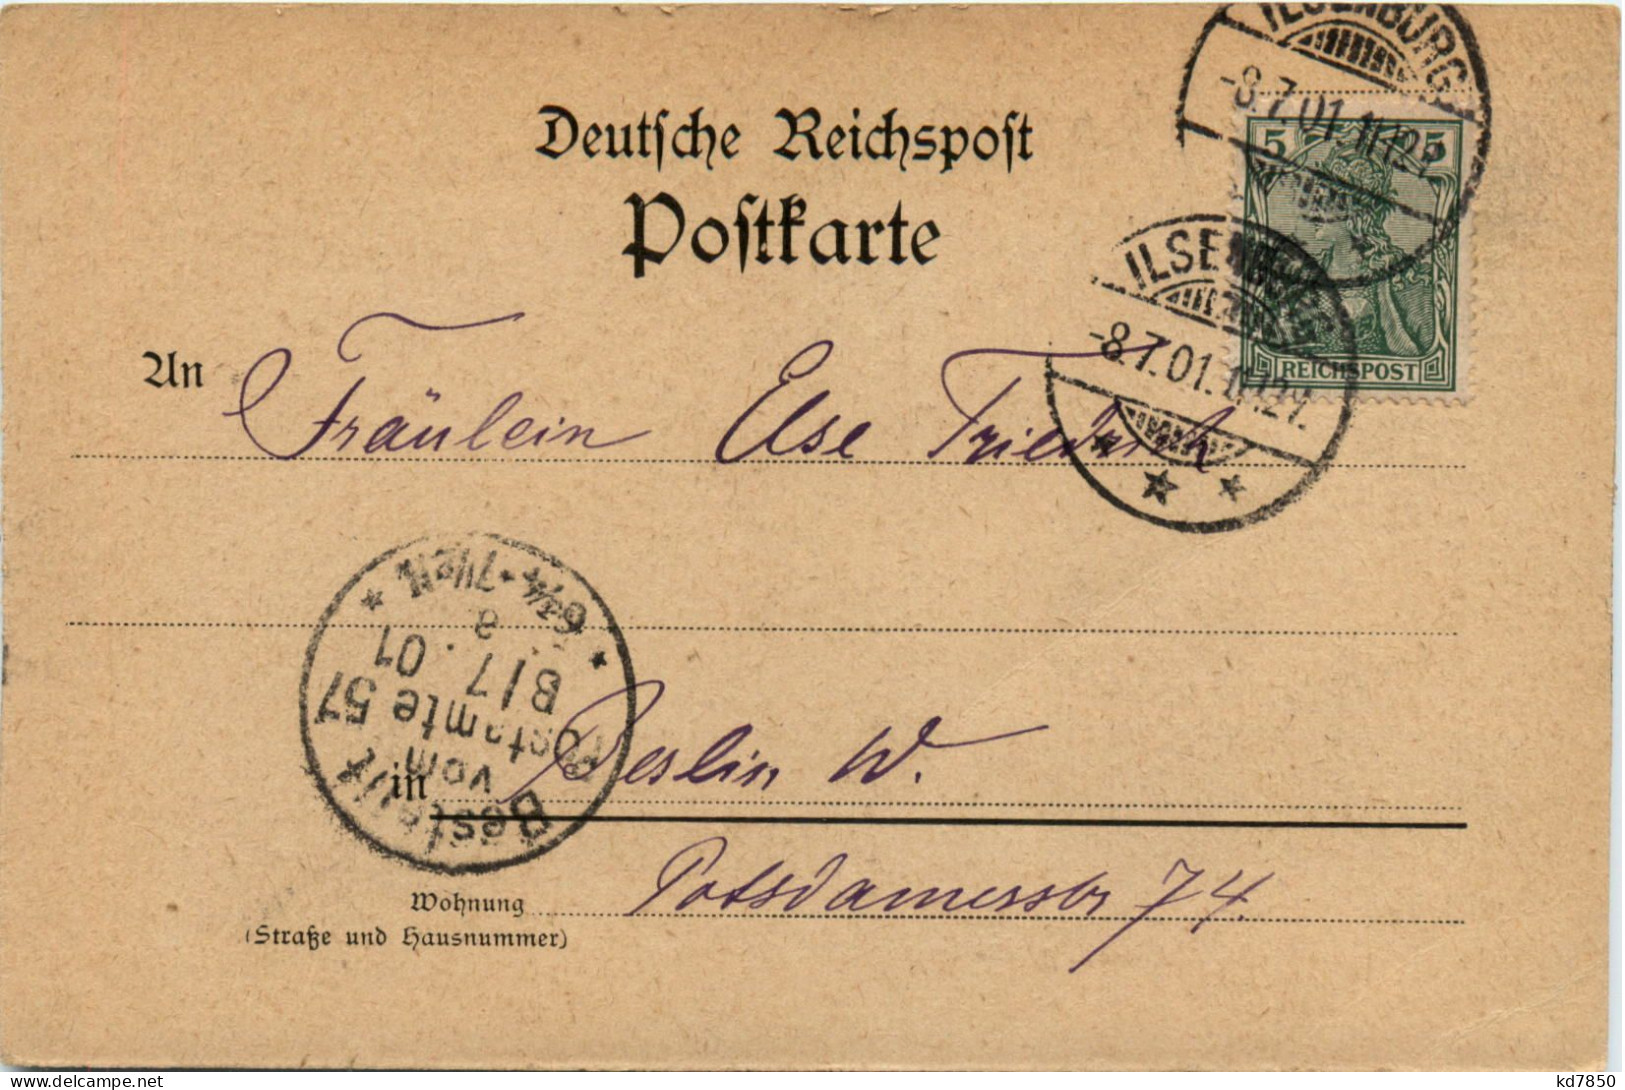 ILSENBURG
-8.7.01.11-12V.
Deutsche Reichspost
Postkarte
5 5
REICHSPOST
ILSENBURG
-8.7.01.11-12V.
An Fräulein Else Friedrich
Bestellt
vom
Postamte 57
8/7.01
a
6¾-7½N
in Berlin W.
Wohnung Potsdamerstr 74.
(Straße und Hausnummer)
kd7850